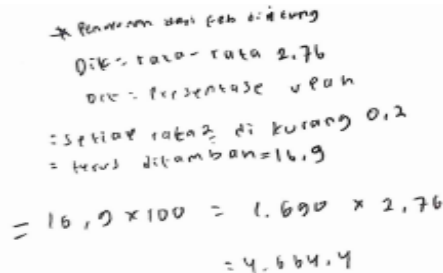 * Penurunan dari Feb dihitung
Dik = rata - rata 2,76
Dit = Presentase upah
= setiap rata2 di kurang 0,2
= terus ditambah = 16,9
= 16,9 x 100 = 1.690 x 2,76
= 4.664,4